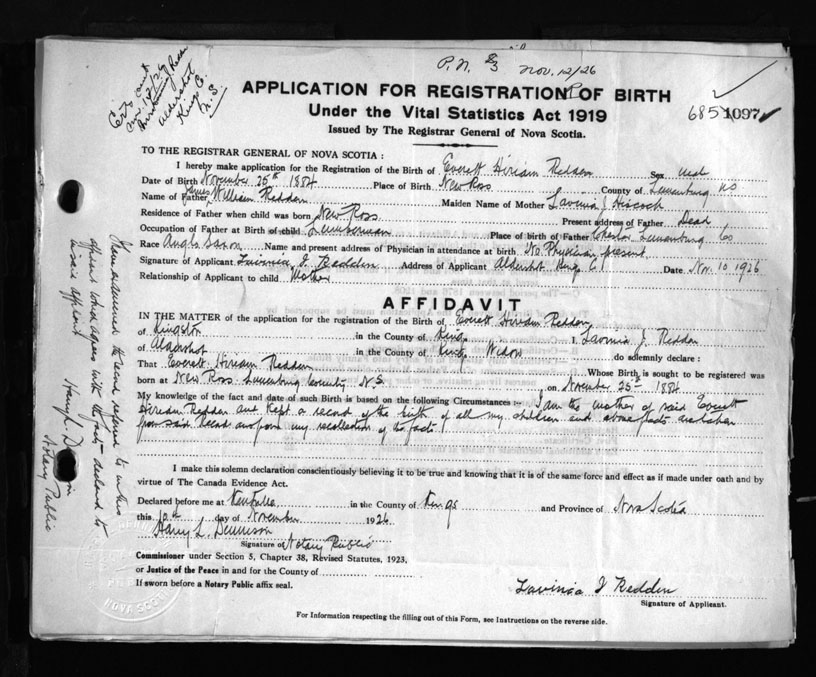 P.N. Nov. 12/26
APPLICATION FOR REGISTRATION OF BIRTH
Under the Vital Statistics Act 1919
Issued by The Registrar General of Nova Scotia.
685 1097
Nov. 12/26
Aldershot
Kings Co.
N.S.
TO THE REGISTRAR GENERAL OF NOVA SCOTIA :
I hereby make application for the Registration of the Birth of Everett Hiriam Redden Sex Male
Date of Birth November 25th 1884 Place of Birth New Ross County of Lunenburg NS
Name of Father James William Redden Maiden Name of Mother Lavinia J Hiscock
Residence of Father when child was born New Ross Present address of Father Dead
Occupation of Father at Birth of child Lumberman Place of birth of Father Chester Lunenburg Co
Race Anglo Saxon Name and present address of Physician in attendance at birth No Physician present
Signature of Applicant Lavinia J. Redden Address of Applicant Aldershot Kings Co Date Nov. 10 1926
Relationship of Applicant to child Mother
AFFIDAVIT
IN THE MATTER of the application for the registration of the Birth of Everett Hiriam Redden
of Kingston in the County of Kings I, Lavinia J. Redden
of Aldershot in the County of Kings Widow do solemnly declare :
That Everett Hiriam Redden Whose Birth is sought to be registered was
born at New Ross Lunenburg County N.S. on November 25th 1884
My knowledge of the fact and date of such Birth is based on the following Circumstances :- I am the mother of said Everett
Hiriam Redden and kept a record of the birth of all my children and above facts are taken
from said record and from my recollection of the facts
I make this solemn declaration conscientiously believing it to be true and knowing that it is of the same force and effect as if made under oath and by
virtue of The Canada Evidence Act.
Declared before me at Kentville in the County of Kings and Province of Nova Scotia
this 10th day of November 1926
Harry L. Dennison
Signature of Notary Public
Commissioner under Section 5, Chapter 38, Revised Statutes, 1923,
or Justice of the Peace in and for the County of
If sworn before a Notary Public affix seal.
Lavinia J Redden
Signature of Applicant.
For Information respecting the filling out of this Form, see Instructions on the reverse side.
the record referred to
affiant which agrees with the facts declared to
affiant
Harry L. D
Notary Public
NOVA SCOTIA